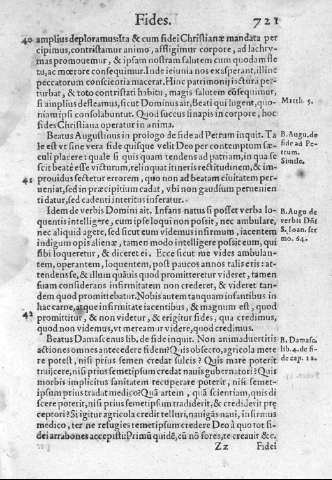 Fides. 721
40 amplius deploramus: Ita & cum fidei Christianæ mandata per
cipimus, contristamur animo, affligimur corpore, ad lachry-
mas promouemur, & ipsam nostram salutem cum quodam fle
tu, ac mœrore consequimur. Inde ieiunia nos exasperant, illinc
peccatorum conscientia macerat. Hinc patrimonij iactura per-
turbat, & toto constristati habitu, magis salutem cõsequimur,
si amplius defleamus, sicut Dominus ait, Beati qui lugent, quo-
niam ipsi consolabuntur. Quod succus sinapis in corpore, hoc
fides Christiana operatur in anima.
Matth. 5.
Beatus Augustinus in prologo de fide ad Petrum inquit. Ta
le est vt sine vera fide quisque velit Deo per contemptum sæ-
culi placere: quale si quis quam tendens ad patriam, in qua se
scit beatè esse victurum, relinquat itineris rectitudinem, & im-
prouidus sectetur errorem, quo non ad beatam ciuitatem per-
ueniat, sed in præcipitium cadat, vbi non gaudium peruenien
ti datur, sed cadenti interitus inferatur.
B. Augu. de
fide ad Pe-
trum.
Simile.
41
Idem de verbis Domini ait. Infans natus si posset verba lo-
quentis intelligere, cum ipse loqui non possit, nec ambulare,
nec aliquid agere, sed sicut eum videmus infirmum, iacentem
indigum opis alienæ, tamen modo intelligere posset eum, qui
sibi loqueretur, & diceret ei. Ecce sicut me vides ambulan-
tem, operantem, loquentem, post paucos annos talis eris: at-
tendens se, & illum quãuis quod promitteretur videret, tamen
suam considerans infirmitatem non crederet, & videret tan-
dem quod promittebatur. Nobis autem tanquam infantibus in
hac carne, atque infirmitate iacentibus, & magnum est, quod
promittitur, & non videtur, & erigitur fides, qua credimus,
quod non videmus, vt mereamur videre, quod credimus.
B. Augu. de
verbis Dñi
S. Ioan. ser
mo. 64.
42
Beatus Damascenus lib. de fide inquit. Non animaduertitis
actiones omnes antecedere fidem? Quis obsecro, agricola mete
re potest, nisi prius semen credat sulcis? Quis mare poterit
traijcere, nisi prius semetipsum credat nauis gubernatori? Quis
morbis implicitus sanitatem recuperare poterit, nisi semet-
ipsum prius tradat medico? Quã artem, quã scientiam, quis di
scere poterit, nisi prius semetipsum tradiderit, & crediderit præ
ceptori? Si igitur agricola credit telluri, nauigãs naui, infirmus
medico, tu ne refugies temetipsum credere Deo à quo tot fi-
dei arrabones accepisti: Primũ quidẽ, cũ nõ fores, te creauit &c.
B. Damasc.
lib. 4. de fi-
de cap. 12.
Zz Fidei